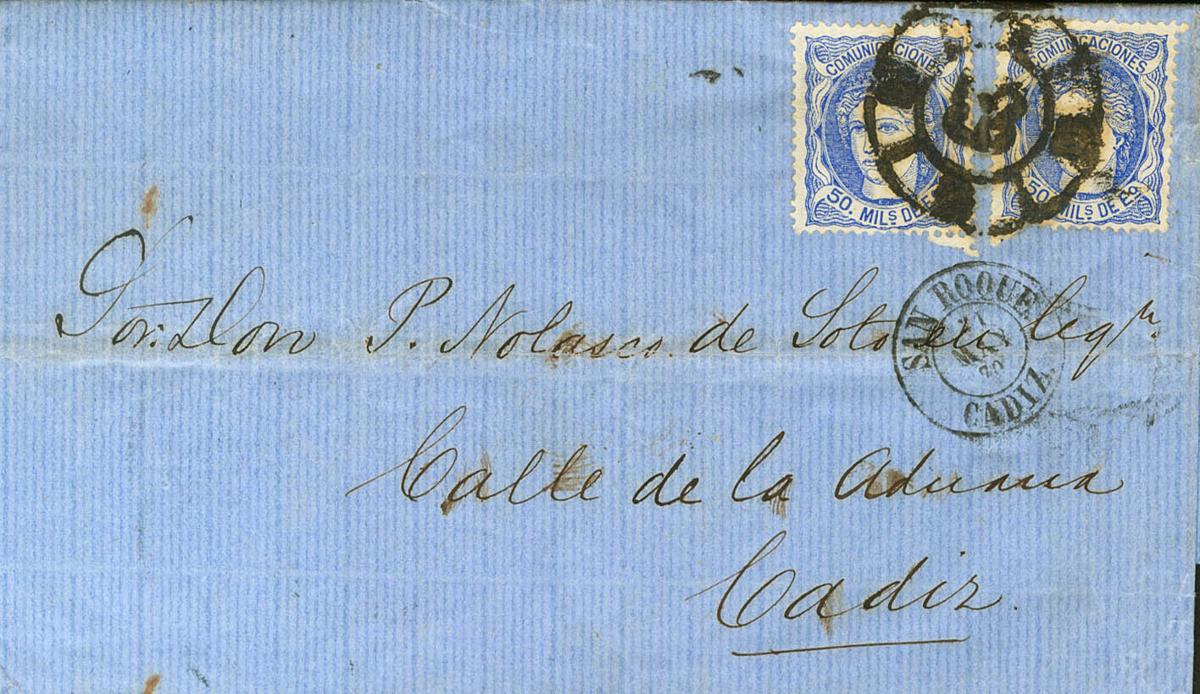 COMUNICACIONES COMUNICACIONES
50. MILS DE Eº 50. MILS DE Eº
SAN ROQUE
CADIZ
Sor. Don P. Nolasco de Soto en liqn.
Calle de la Aduana
Cadiz.